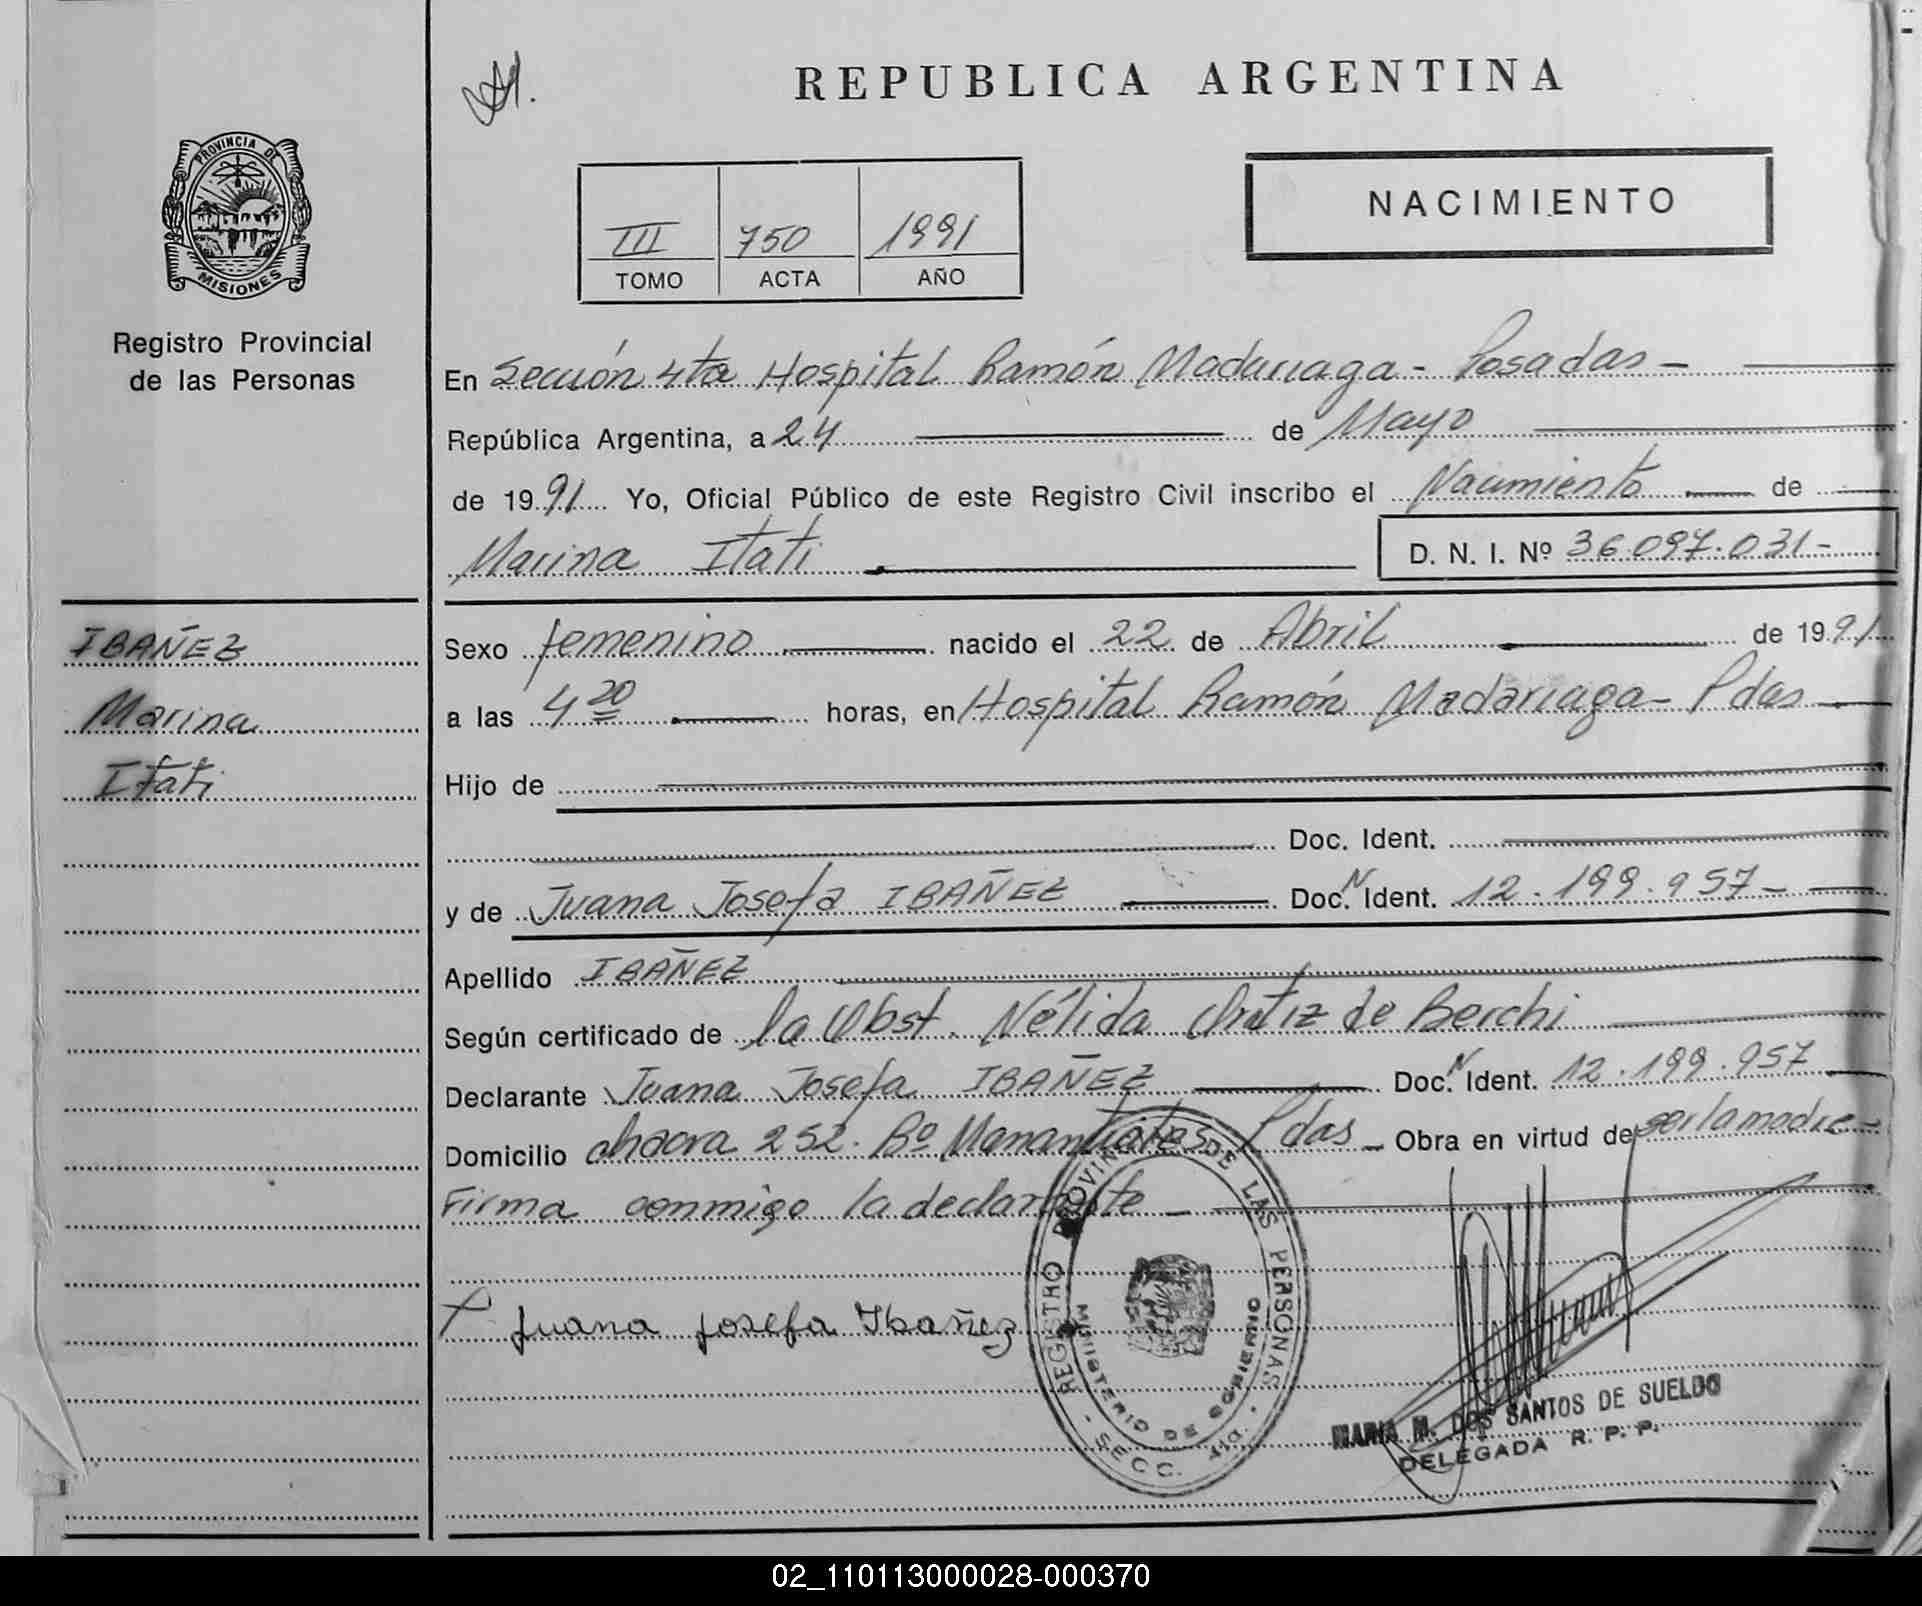 REPUBLICA ARGENTINA
PROVINCIA DE
MISIONES
Registro Provincial
de las Personas
III 750 1991
TOMO ACTA AÑO
NACIMIENTO
En Sección 4ta Hospital Ramón Madariaga - Posadas -
República Argentina, a 24 de Mayo
de 1991 Yo, Oficial Público de este Registro Civil inscribo el Nacimiento de
Marina Itati D. N. I. Nº 36.097.031-
IBAÑEZ
Marina
Itati
Sexo femenino nacido el 22 de Abril de 1991
a las 4 20 horas, en Hospital Ramón Madariaga - Pdas
Hijo de
Doc. Ident.
y de Juana Josefa IBAÑEZ Doc. N Ident. 12.199.957-
Apellido IBAÑEZ
Según certificado de la Obst. Nélida Ortiz de Berchi
Declarante Juana Josefa IBAÑEZ Doc. N Ident. 12.199.957
Domicilio chacra 252. Bº Manantiales Pdas - Obra en virtud de ser la madre -
Firma conmigo la declarante -
Juana Josefa Ibañez
REGISTRO PROVINCIAL DE LAS PERSONAS
MINISTERIO DE GOBIERNO
- SECC. 4ta. -
MARIA M. DOS SANTOS DE SUELDO
DELEGADA R. P. P.
02_110113000028-000370